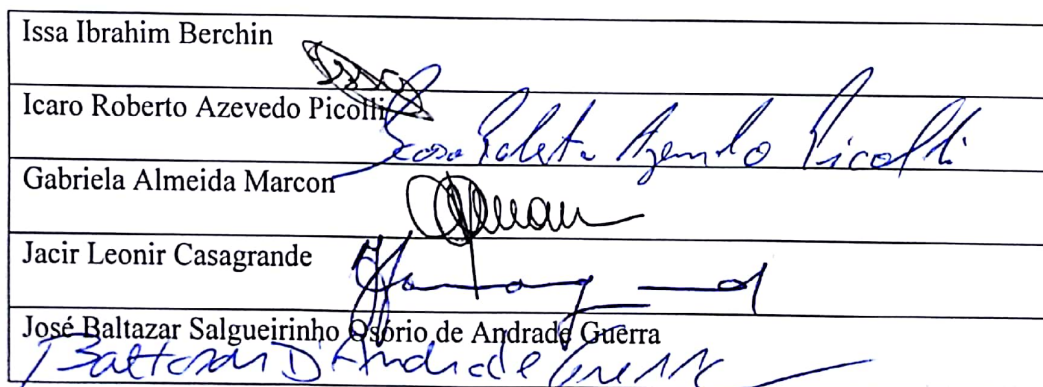 Issa Ibrahim Berchin
Icaro Roberto Azevedo Picolli
Icaro Roberto Azevedo Picolli
Gabriela Almeida Marcon
Jacir Leonir Casagrande
José Baltazar Salgueirinho Osório de Andrade Guerra
Baltazar D'Andrade Guerra